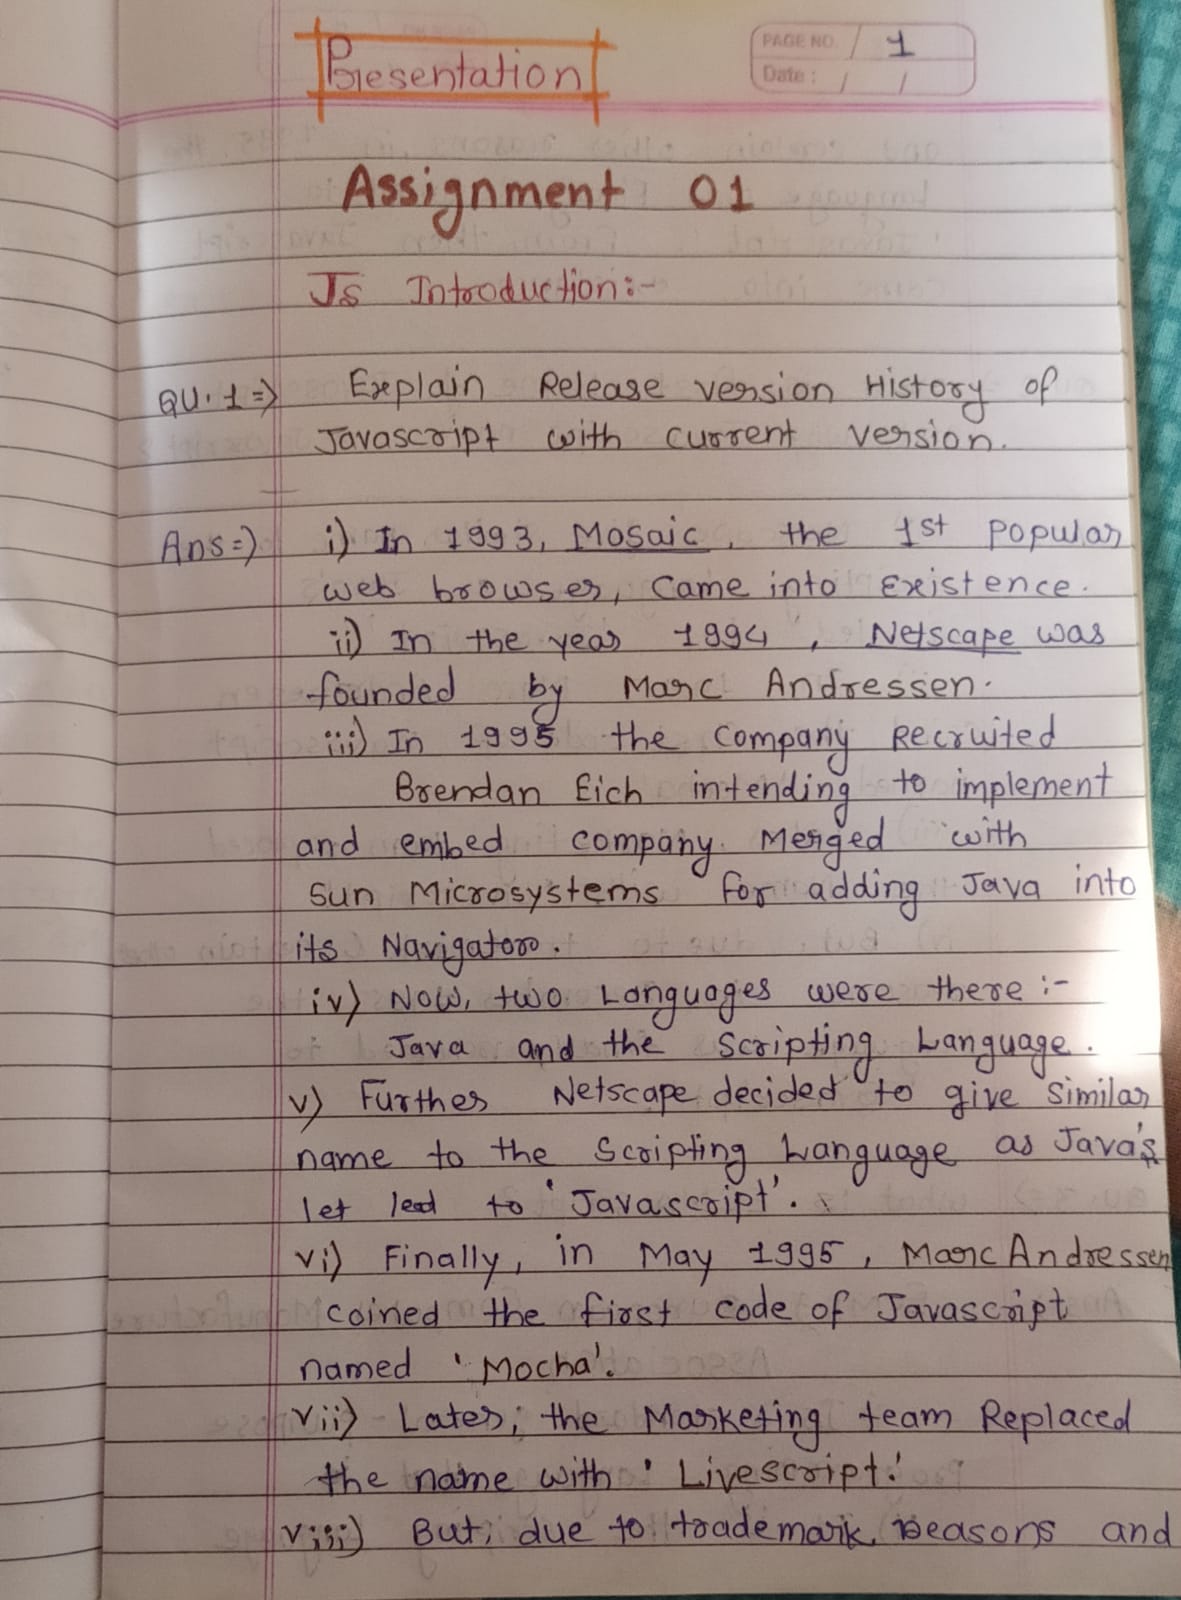 Presentation
PAGE NO. 1
Date : / /
Assignment 01
Js Introduction:-
QU. 1 => Explain Release version History of
Javascript with current version.
Ans =) i) In 1993, Mosaic, the 1st popular
web browser, came into Existence.
ii) In the year 1994, Netscape was
founded by Marc Andressen.
iii) In 1995 the company Recruited
Brendan Eich intending to implement
and embed company. Merged with
Sun Microsystems for adding Java into
its Navigator.
iv) Now, two Languages were there :-
Java and the Scripting Language.
v) Further Netscape decided to give Similar
name to the Scripting Language as Java's
let lead to 'Javascript'.
vi) Finally, in May 1995, Marc Andressen
coined the first code of Javascript
named 'Mocha'.
vii) Later, the Marketing team Replaced
the name with 'Livescript.'
viii) But, due to trademark reasons and